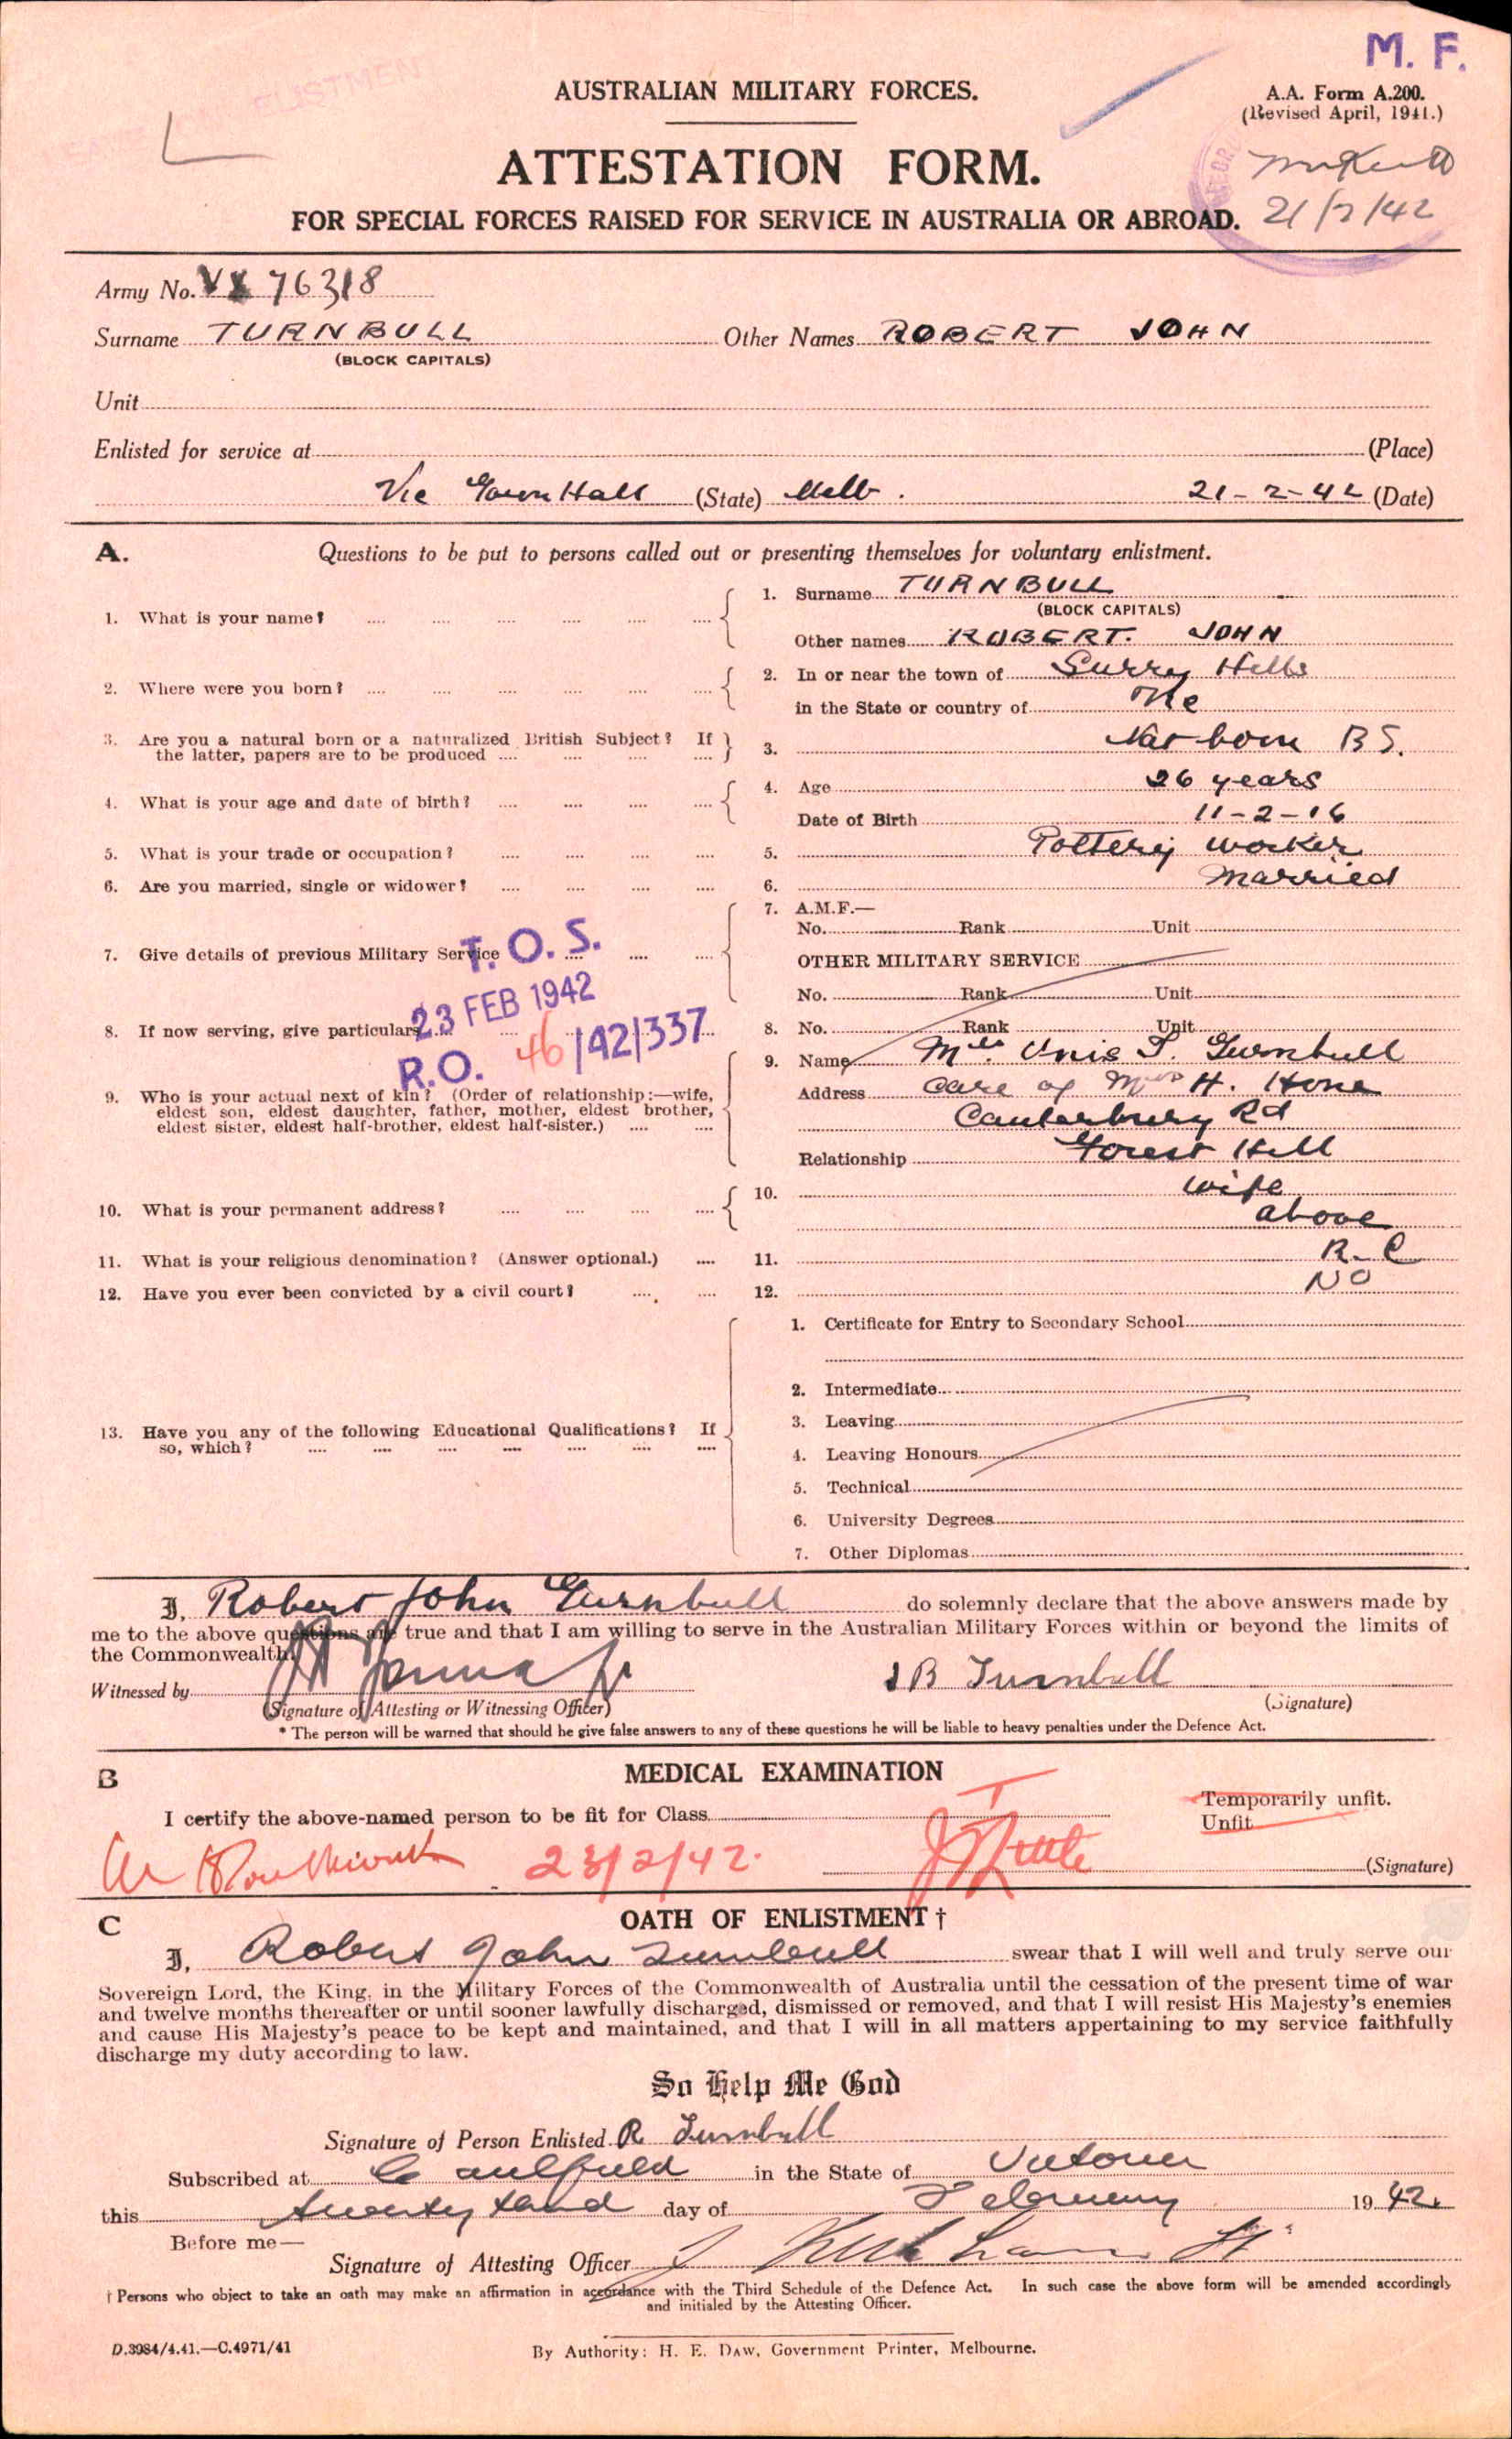 M. F.
AUSTRALIAN MILITARY FORCES.
A.A. Form A.200.
(Revised April, 1941.)
ATTESTATION FORM.
FOR SPECIAL FORCES RAISED FOR SERVICE IN AUSTRALIA OR ABROAD.
21/2/42
Army No. VX 76318
Surname TURNBULL Other Names ROBERT JOHN
(BLOCK CAPITALS)
Unit
Enlisted for service at (Place)
Vic Town Hall (State) Melb. 21-2-42 (Date)
A. Questions to be put to persons called out or presenting themselves for voluntary enlistment.
1. What is your name? 1. Surname TURNBULL
(BLOCK CAPITALS)
Other names ROBERT. JOHN
2. Where were you born? 2. In or near the town of Surrey Hills
in the State or country of Vic
3. Are you a natural born or a naturalized British Subject? If the latter, papers are to be produced 3. Nat born B S.
4. What is your age and date of birth? 4. Age 26 years
Date of Birth 11-2-16
5. What is your trade or occupation? 5. Pottery worker
6. Are you married, single or widower? 6. married
7. Give details of previous Military Service 7. A.M.F.—
No. Rank Unit
OTHER MILITARY SERVICE
No. Rank Unit
T. O. S.
23 FEB 1942
R.O. 46/42/337
8. If now serving, give particulars 8. No. Rank Unit
9. Who is your actual next of kin? (Order of relationship:—wife,
eldest son, eldest daughter, father, mother, eldest brother,
eldest sister, eldest half-brother, eldest half-sister.)
9. Name Mrs. Unis Turnbull
Address care of Mrs H. Hone
Canterbury Rd
Relationship Forest Hill
wife
10. What is your permanent address? 10. above
11. What is your religious denomination? (Answer optional.) 11. R.C
12. Have you ever been convicted by a civil court? 12. NO
13. Have you any of the following Educational Qualifications? If so, which?
1. Certificate for Entry to Secondary School
2. Intermediate
3. Leaving
4. Leaving Honours
5. Technical
6. University Degrees
7. Other Diplomas
I, Robert John Turnbull do solemnly declare that the above answers made by
me to the above questions are true and that I am willing to serve in the Australian Military Forces within or beyond the limits of
the Commonwealth.
Witnessed by Turnbull
(Signature of Attesting or Witnessing Officer) (Signature)
* The person will be warned that should he give false answers to any of these questions he will be liable to heavy penalties under the Defence Act.
B MEDICAL EXAMINATION
I certify the above-named person to be fit for Class Temporarily unfit.
Unfit
23/2/42. (Signature)
C OATH OF ENLISTMENT †
I, Robert John Turnbull swear that I will well and truly serve our
Sovereign Lord, the King, in the Military Forces of the Commonwealth of Australia until the cessation of the present time of war
and twelve months thereafter or until sooner lawfully discharged, dismissed or removed, and that I will resist His Majesty's enemies
and cause His Majesty's peace to be kept and maintained, and that I will in all matters appertaining to my service faithfully
discharge my duty according to law.
So Help Me God
Signature of Person Enlisted R Turnbull
Subscribed at Caulfield in the State of Victoria
this twenty third day of February 1942.
Before me—
Signature of Attesting Officer
† Persons who object to take an oath may make an affirmation in accordance with the Third Schedule of the Defence Act. In such case the above form will be amended accordingly
and initialed by the Attesting Officer.
D.3984/4.41.—C.4971/41 By Authority: H. E. DAW, Government Printer, Melbourne.